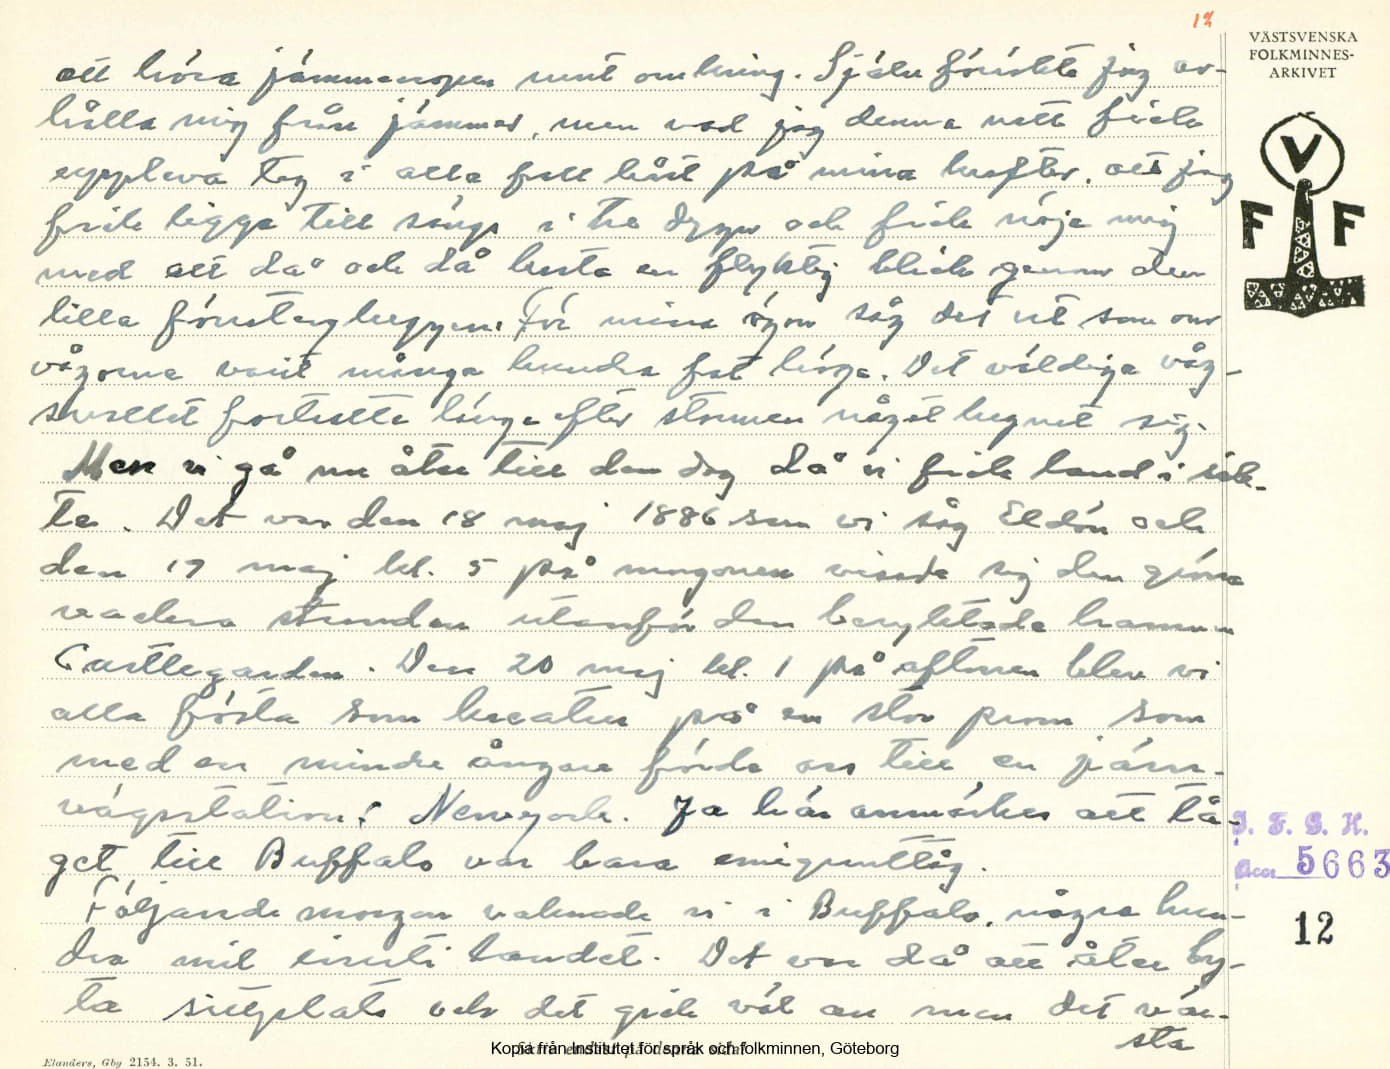 12
VÄSTSVENSKA
FOLKMINNES-
ARKIVET
V
F F
att höra jämmerropen runt omkring. Själv försökte jag av-
hålla mig från jämmer, men vad jag denna natt fick
uppleva tog i alla fall hårt på mina krafter, att jag
fick ligga till sängs i tre dygn och fick nöja mig
med att då och då kasta en flyktig blick genom den
lilla fönstergluggen. För mina ögon såg det ut som om
vågorna varit många hundra fot höga. Det väldiga våg-
svallet fortsatte länge efter stormen något lugnat sig.
Men vi gå nu åter till den dag då vi fick land i sik-
te. Det var den 18 maj 1886 som vi såg Eldön och
den 19 maj kl. 5 på morgonen visade sig den
stranden utanför den beryktade hamnen
Castlegarden. Den 20 maj kl. 1 på aftonen blev vi
alla fösta som kreatur på en stor pråm som
med en mindre ångare förde oss till en järn-
vägsstation i Newyork. Ja här anmärkes att tå-
get till Buffalo var bara emigranttåg.
Följande morgon vaknade vi i Buffalo, några hun-
dra mil inuti landet. Det var då att åter by-
ta sittplats och det gick väl an men det vär-
sta
I. F. G. H.
Acc. 5663
12
Kopia från Institutet för språk och folkminnen, Göteborg
Elanders, Gbg 2154. 3. 51.